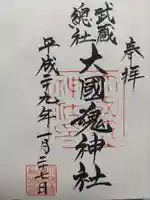 奉拝
武蔵
總社
大國魂神社
平成二九年一月二七日